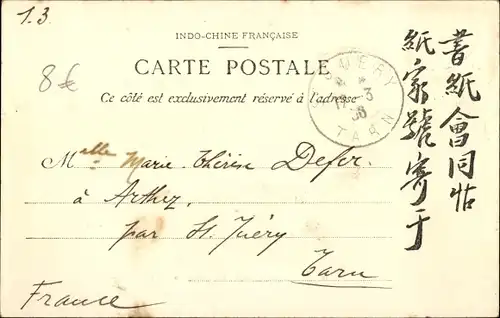 1.3
8€
INDO-CHINE FRANÇAISE
CARTE POSTALE
Ce côté est exclusivement réservé à l'adresse
JUERY
TARN
Melle Marie-Thérèse Defer.
à Arthez.
par St. Juéry
Tarn
France
書紙會同帖
紙家號寄于